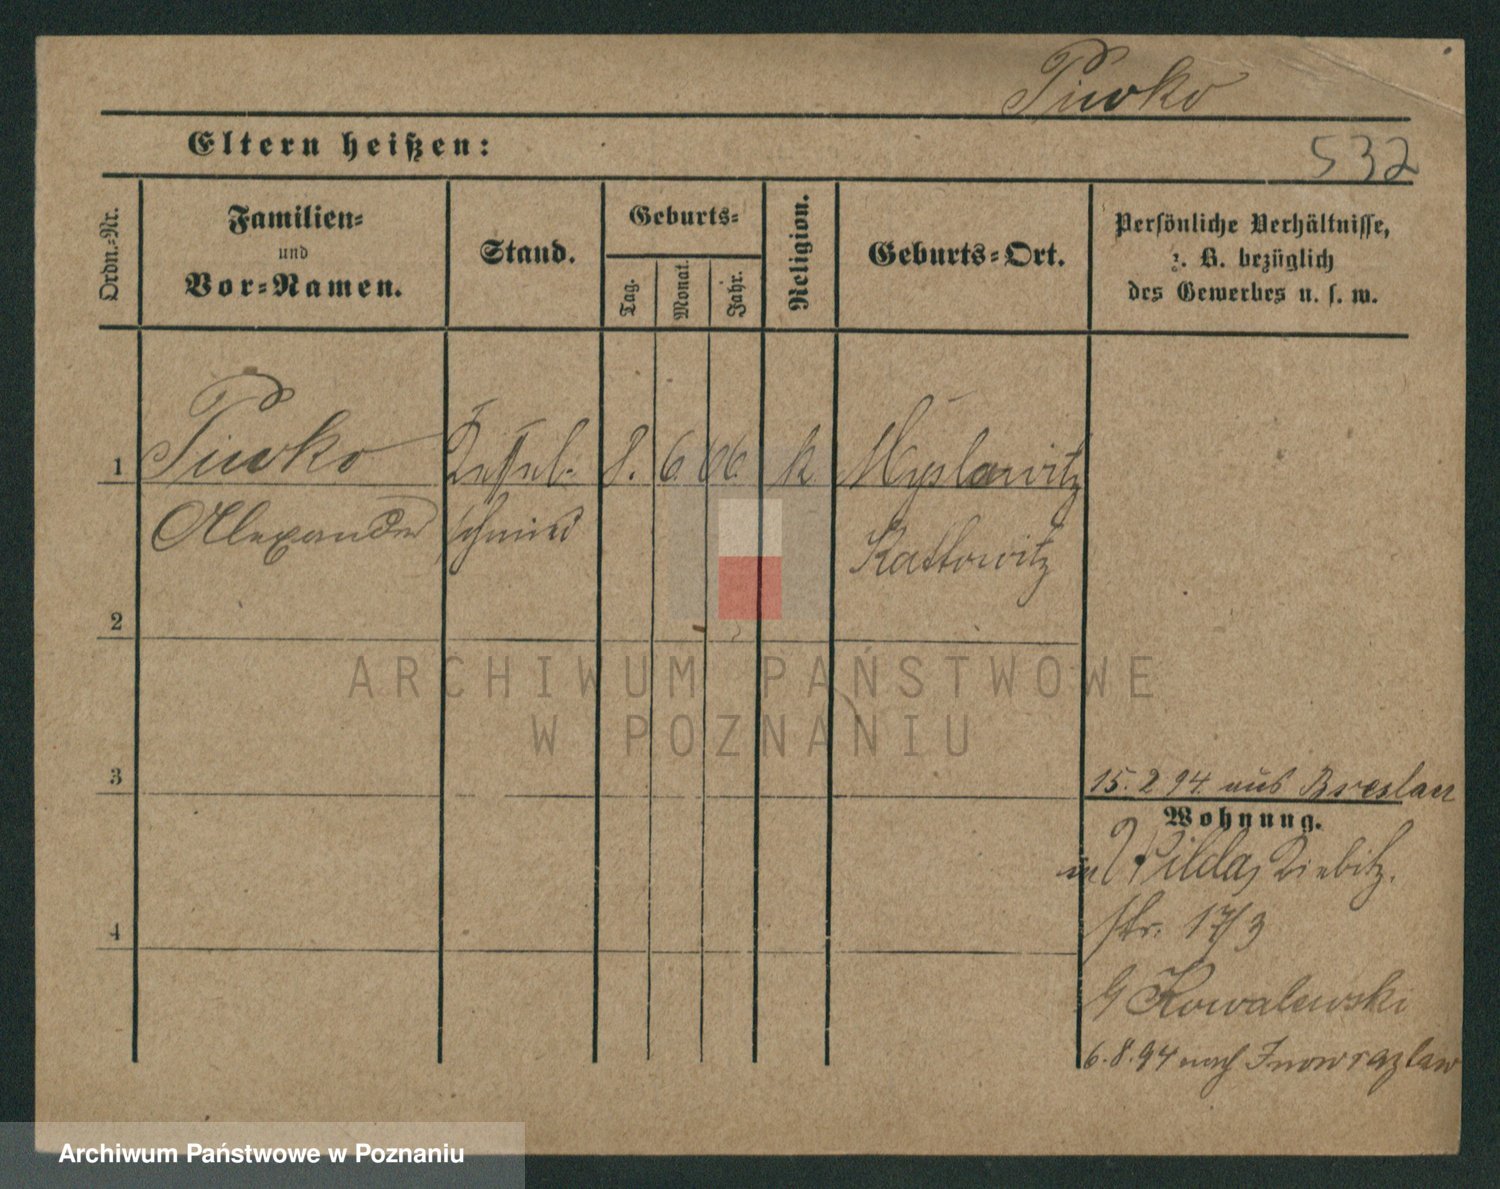 Piwko
Eltern heißen:
532
Ordn.-Nr.
Familien-
und
Vor-Namen.
Stand.
Geburts-
Tag.
Monat.
Jahr.
Religion.
Geburts-Ort.
Persönliche Verhältnisse,
z. B. bezüglich
des Gewerbes u. s. w.
1 Piwko Kessel- 8. 6. 66. k Myslowitz
Alexander schmied Kattowitz
2
ARCHIWUM PAŃSTWOWE
W POZNANIU
3
15. 2 94. aus Breslau
Wohnung.
in Wilda, Kiebitz.
4
str. 17/3
Kowalewski
6. 8. 94 nach Inowrazlaw
Archiwum Państwowe w Poznaniu